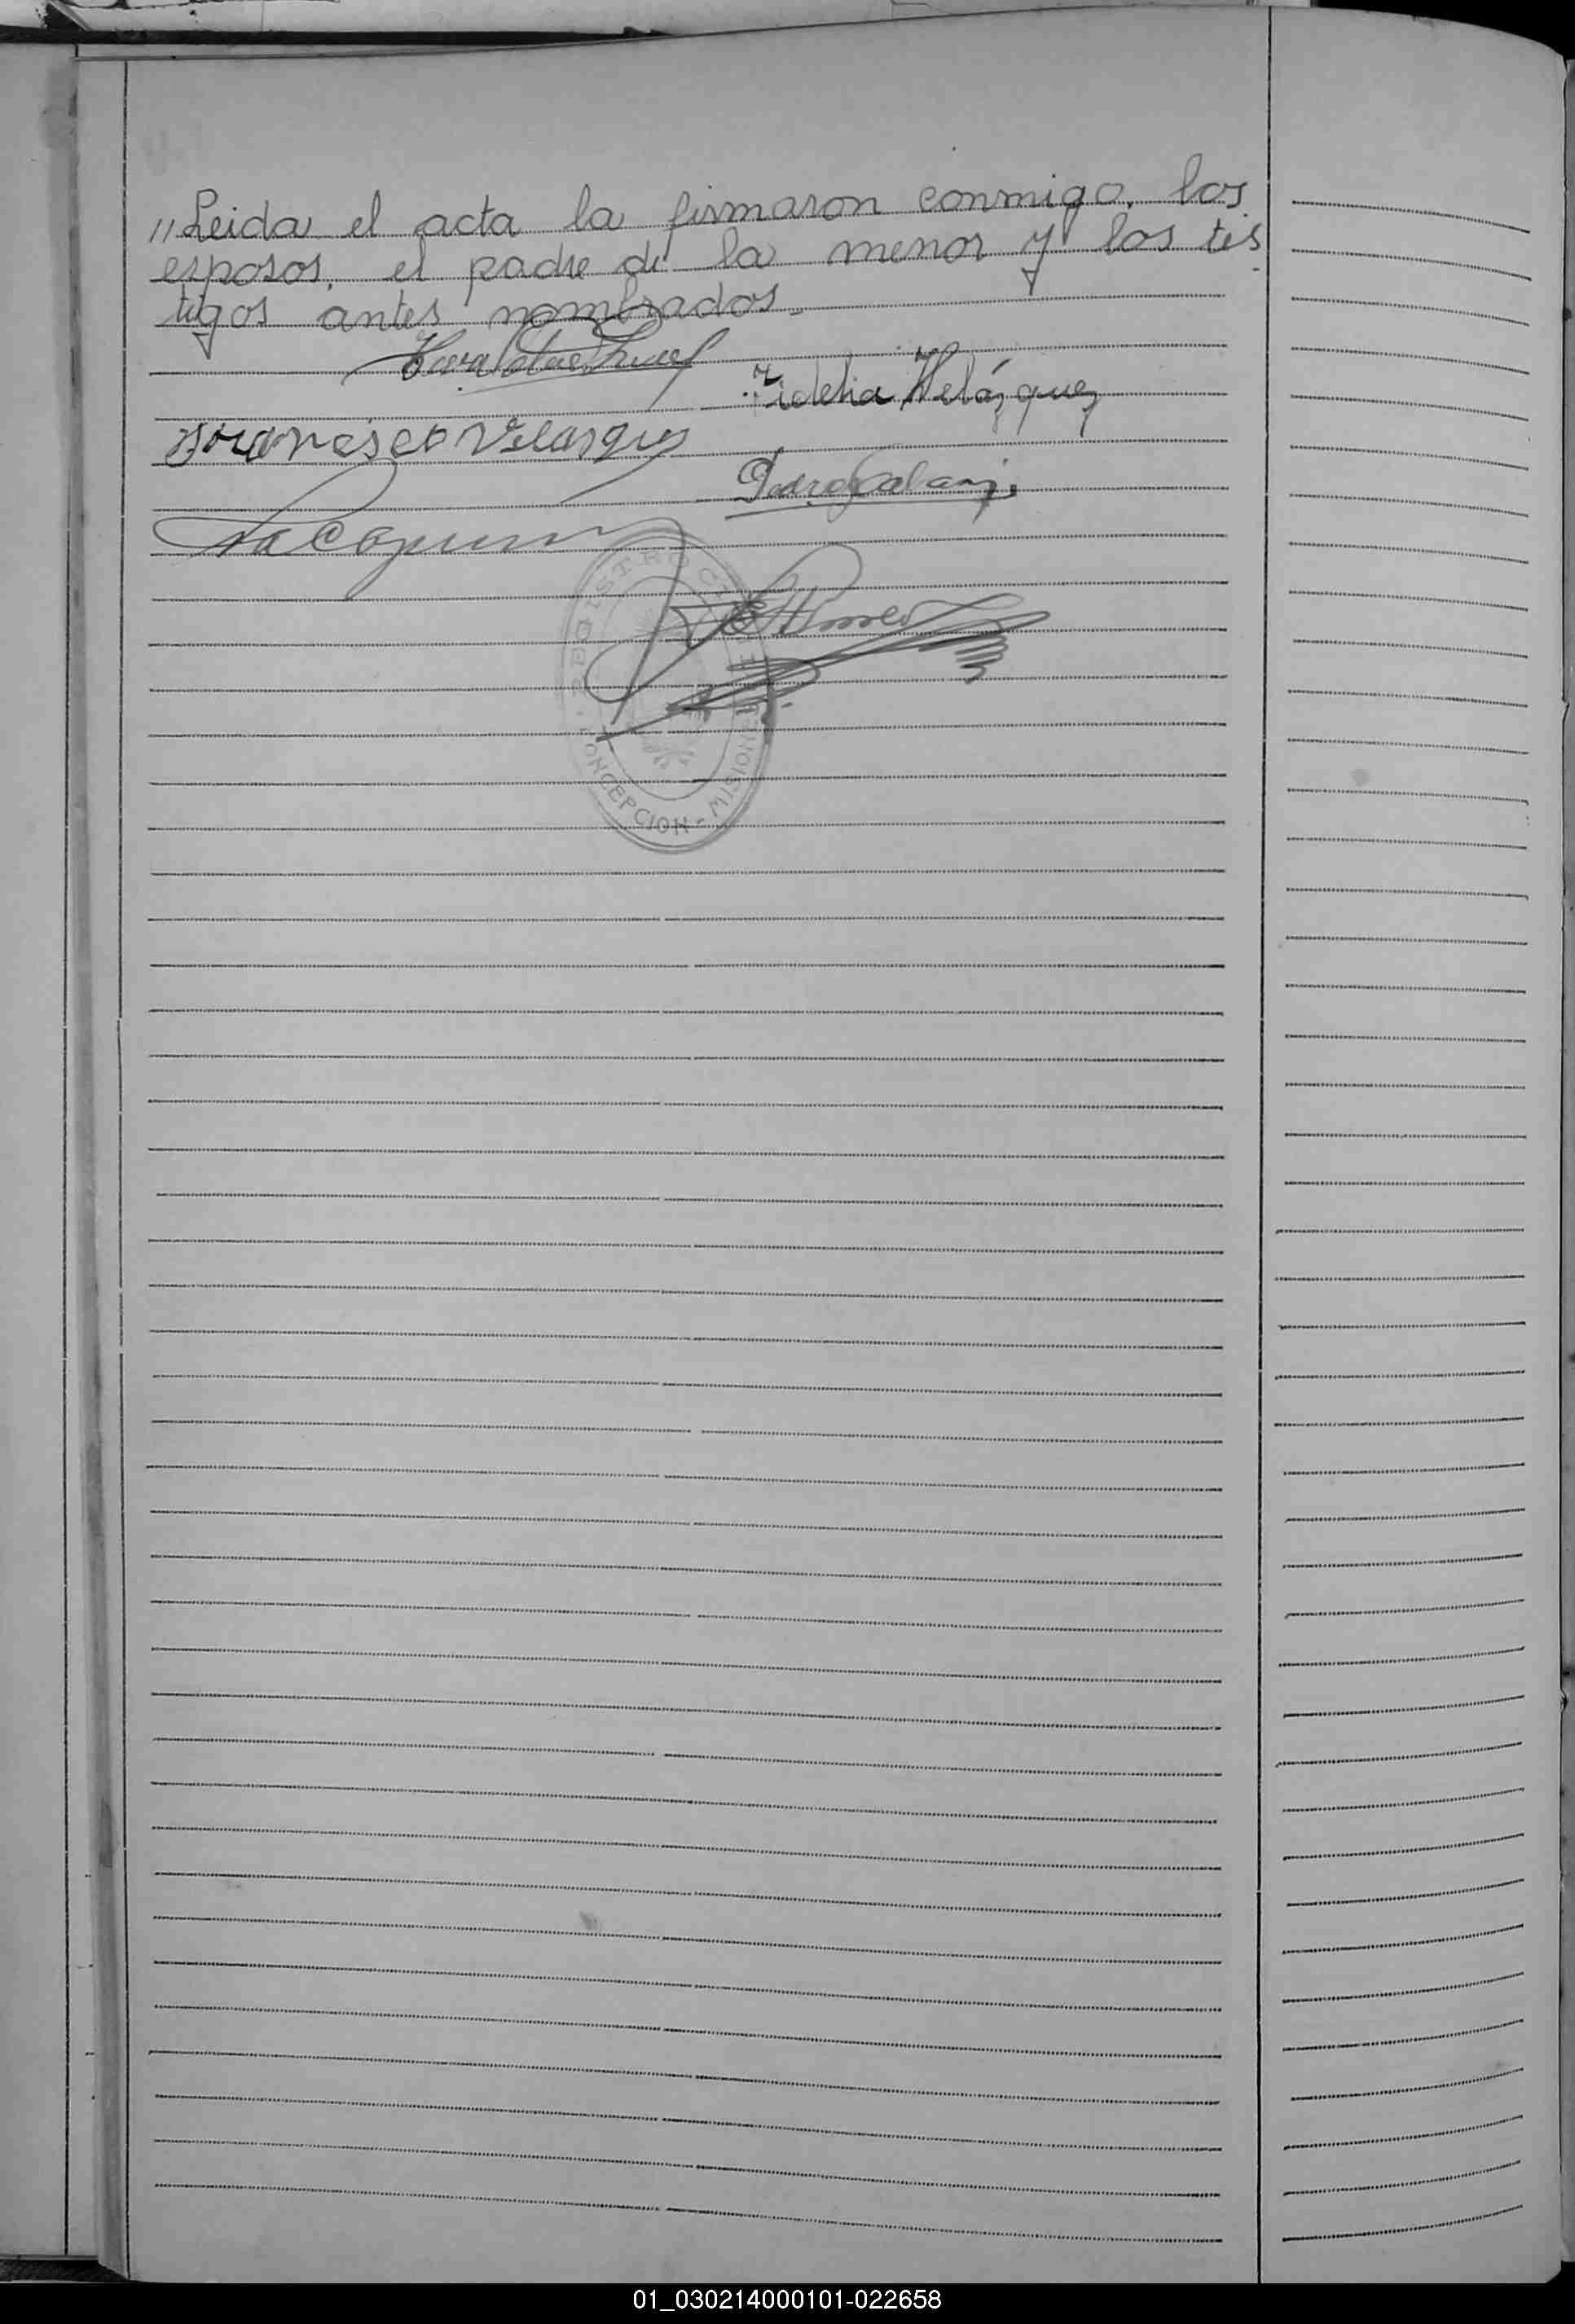 "Leida el acta la firmaron conmigo, los
esposos, el padre de la menor y los tes
tigos antes nombrados.
Fidelia Velázquez
Fransisco Velasques
Pedro Galarz
REGISTRO CIVIL
CONCEPCION - MISIONES
01_030214000101-022658